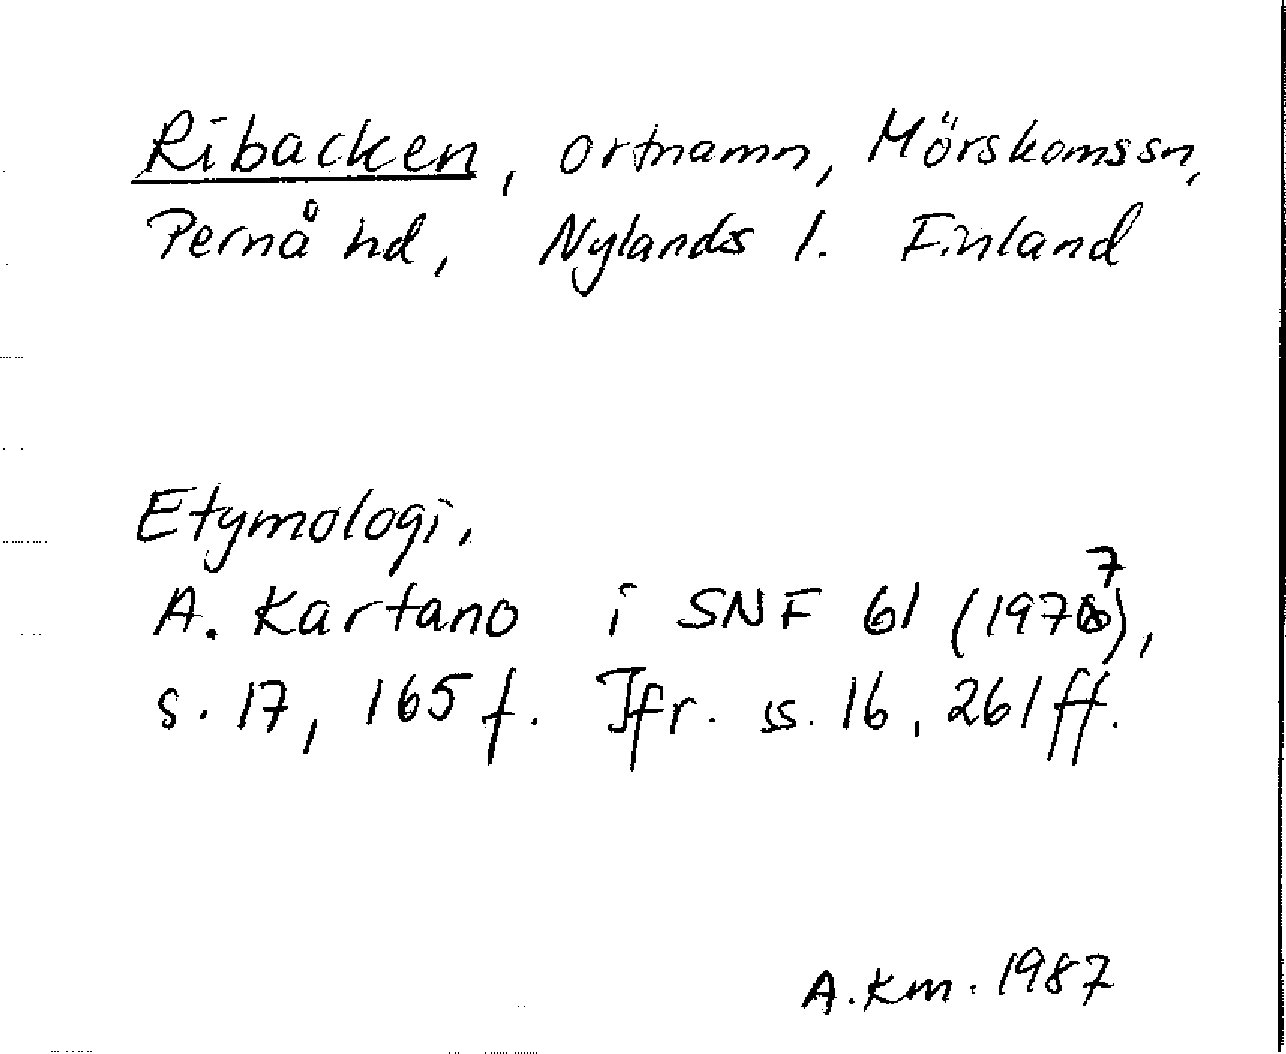 Ribacken, ortnamn, Mörskomssn,
Pernå hd, Nylands l. Finland
Etymologi,
A. Kartano i SNF 61 (1977),
s. 17, 165 f. Jfr. ss. 16, 261 ff.
A.Km. 1987